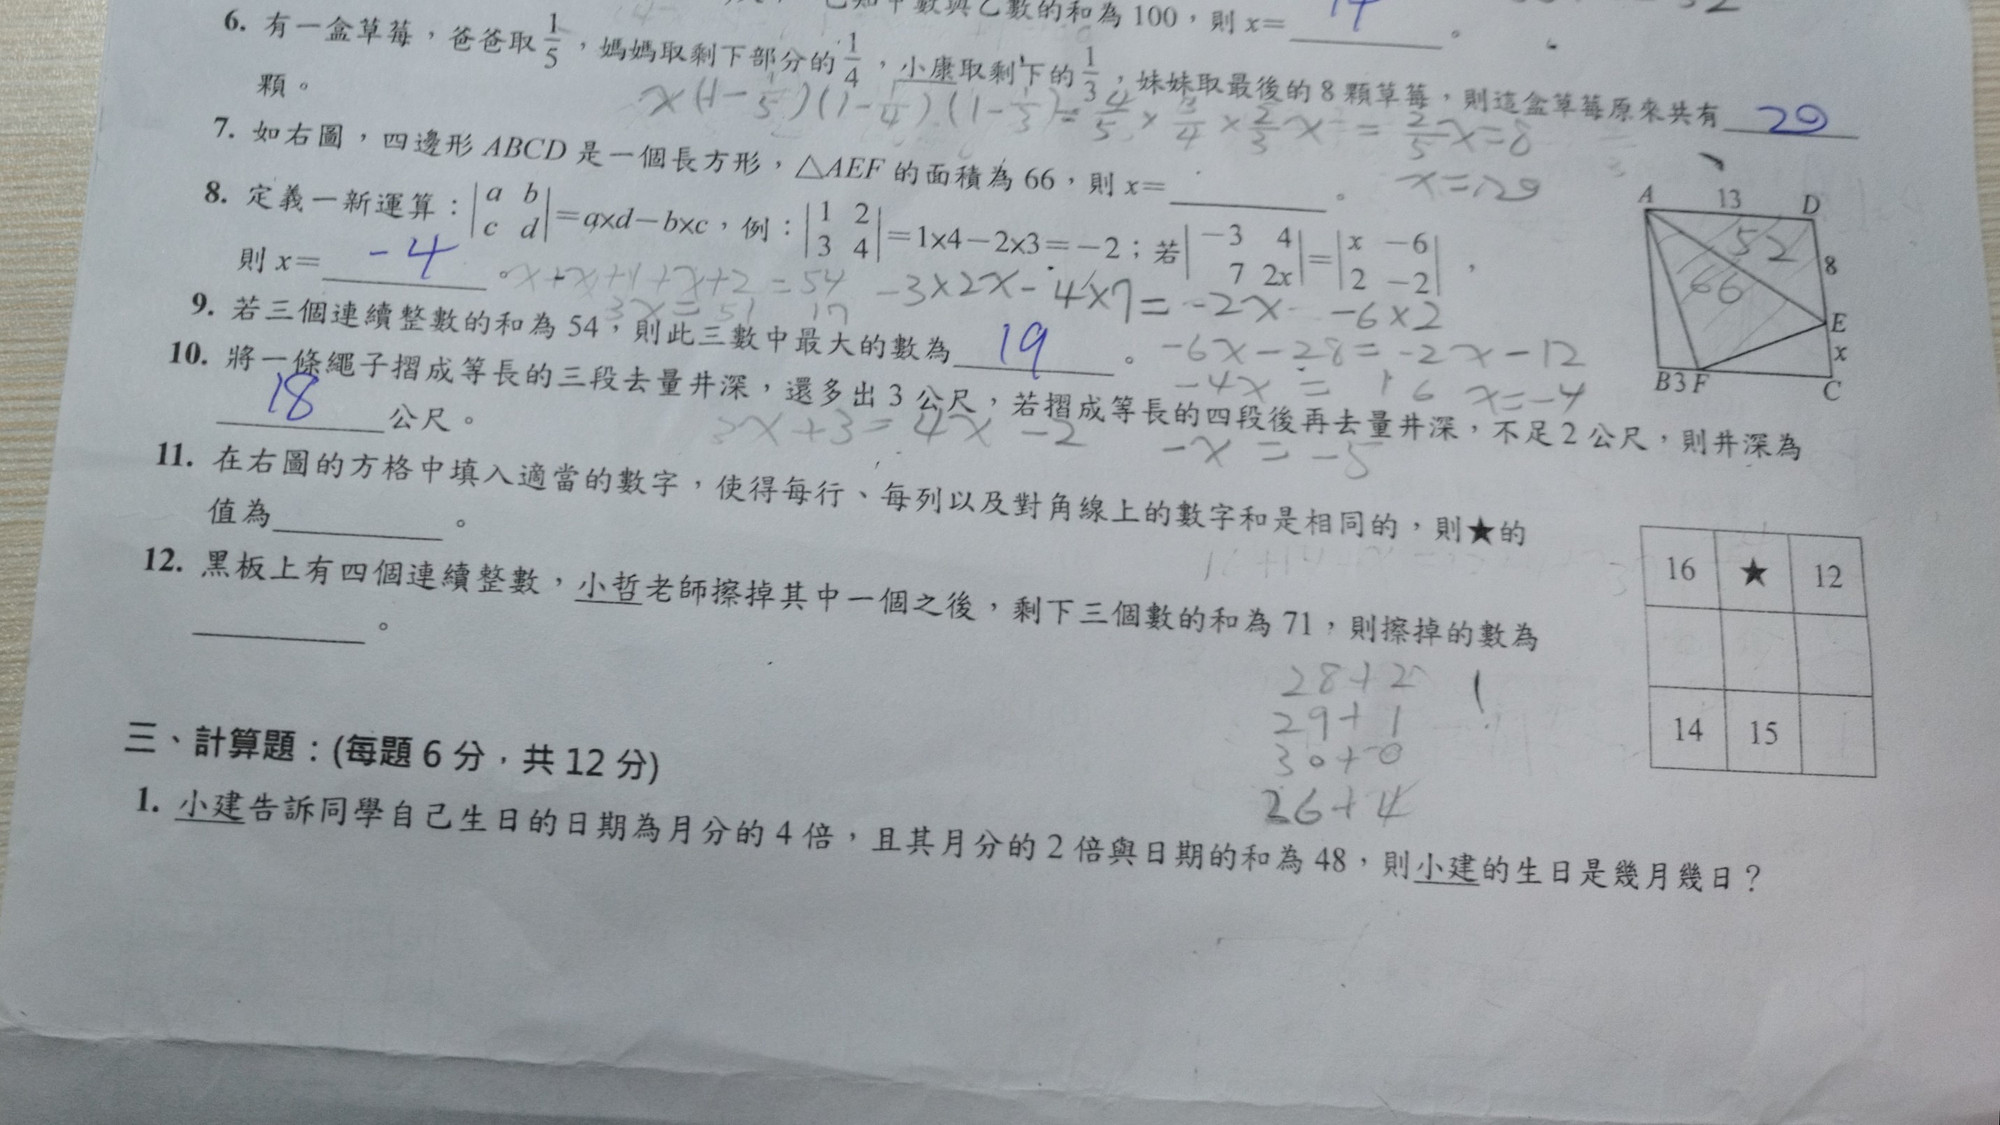 已知甲數與乙數的和為100，則x= 14 。
6. 有一盒草莓，爸爸取1/5，媽媽取剩下部分的1/4，小康取剩下的1/3，妹妹取最後的8顆草莓，則這盒草莓原來共有 20
顆。
x(1-1/5)(1-1/4)(1-1/3)=4/5×3/4×2/3x=2/5x=8
x=20
7. 如右圖，四邊形ABCD是一個長方形，△AEF的面積為66，則x=＿＿＿。
A 13 D
52
8
66
E
x
B 3 F C
8. 定義一新運算：|a b; c d|=a×d−b×c，例：|1 2; 3 4|=1×4−2×3=−2；若|−3 4; 7 2x|=|x −6; 2 −2|，
則x= -4 。
x+x+1+x+2=54
3x=51 17
-3×2x-4×7=-2x- -6×2
-6x-28=-2x-12
-4x=16 x=-4
9. 若三個連續整數的和為54，則此三數中最大的數為 19 。
10. 將一條繩子摺成等長的三段去量井深，還多出3公尺，若摺成等長的四段後再去量井深，不足2公尺，則井深為
18 公尺。
3x+3=4x-2
-x=-5
11. 在右圖的方格中填入適當的數字，使得每行、每列以及對角線上的數字和是相同的，則★的
值為＿＿＿。
16 ★ 12
14 15
12. 黑板上有四個連續整數，小哲老師擦掉其中一個之後，剩下三個數的和為71，則擦掉的數為
＿＿＿。
28+2
29+1
30+0
26+4
三、計算題：(每題6分，共12分)
1. 小建告訴同學自己生日的日期為月分的4倍，且其月分的2倍與日期的和為48，則小建的生日是幾月幾日？